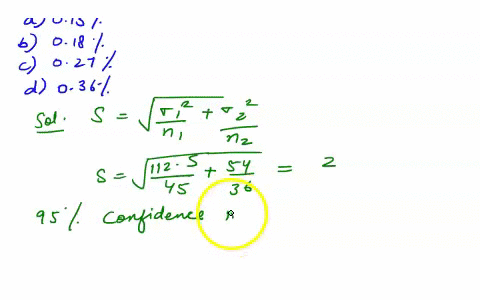 a) 0.15%
b) 0.18%
c) 0.27%
d) 0.36%
Sol. S = √(σ₁²/n₁ + σ₂²/n₂)
S = √(112.5/45 + 54/36) = 2
95% Confidence